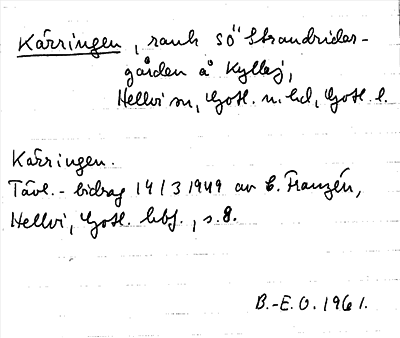 Kärringen, rauk sö Strandridar-
gården å Kyllej,
Hellvi sn, Gotl. n. hd, Gotl. l.
Kärringen.
Tävl.-bidrag 14/3 1949 av E. Franzén,
Hellvi, Gotl. hbf., s. 8.
B.-E. O. 1961.